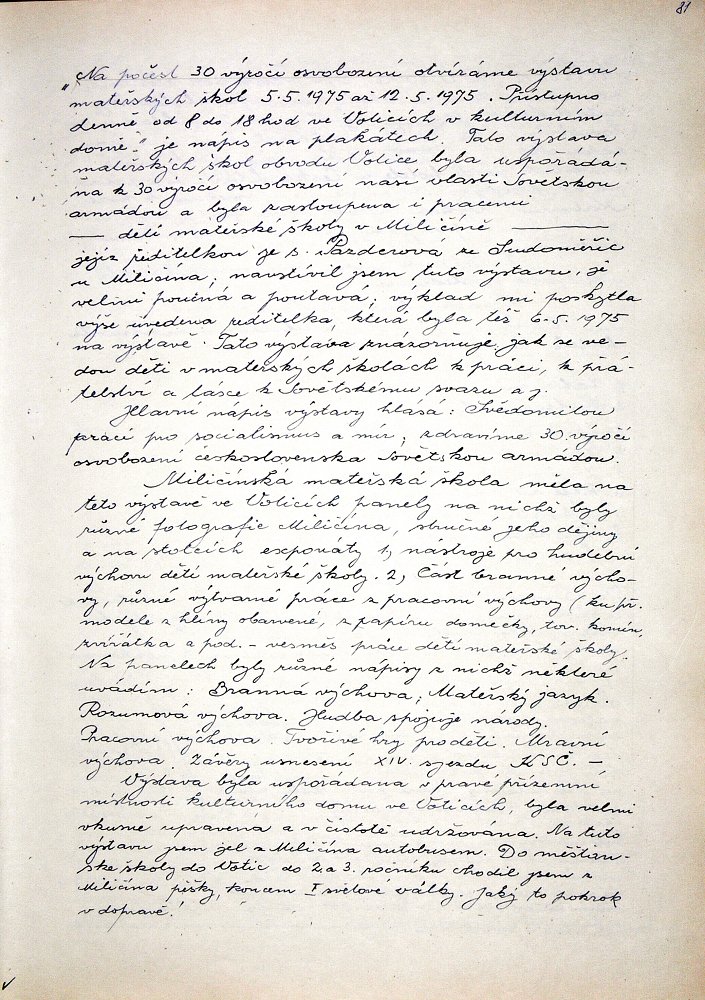 81
"Na počest 30 výročí osvobození otvíráme výstavu
mateřských škol 5.5.1975 až 12.5.1975. Přístupno
denně od 8 do 18 hod ve Voticích v kulturním
domě." je nápis na plakátech. Tato výstava
mateřských škol obvodu Votice byla uspořádá-
na k 30 výročí osvobození naší vlasti Sovětskou
armádou a byla zastoupena i pracemi
— dětí mateřské školy v Miličíně —
jejíž ředitelkou je s. Pazderová ze Sudoměřic
u Miličína; navštívil jsem tuto výstavu, je
velmi poučná a poutavá; výklad mi poskytla
výše uvedena ředitelka, která byla též 6.5.1975
na výstavě. Tato výstava znázorňuje, jak se ve-
dou děti v mateřských školách k práci, k přá-
telství a lásce k Sovětskému svazu a j.
Hlavní nápis výstavy hlasá: Svědomitou
prací pro socialismus a mír; zdravíme 30 výročí
osvobození československa Sovětskou armádou.
Miličínská mateřská škola měla na
této výstavě ve Voticích panely na nichž byly
různé fotografie Miličína, stručné jeho dějiny
a na stolcích exponáty 1, nástroje pro hudební
výchovu dětí mateřské školy. 2, Část branné výcho-
vy, různé výtvarné práce z pracovní výchovy (ku př.
modele z hlíny obarvené, z papíru domečky, tov. komín,
zvířátka a pod. - vesměs práce dětí mateřské školy.
Na panelech byly různé nápisy z nichž některé
uvádím: Branná výchova; Mateřský jazyk.
Rozumová výchova. Hudba spojuje národy.
Pracovní výchova. Tvořivé hry pro děti. Mravní
výchova. Závěry usnesení XIV. sjezdu KSČ. —
Výstava byla uspořádana v pravé přízemní
místnosti kulturního domu ve Voticích, byla velmi
vkusně upravená a v čistotě udržována. Na tuto
výstavu jsem jel z Miličína autobusem. Do měšťan-
ské školy do Votic do 2. a 3. ročníku chodil jsem z
Miličína pěšky, koncem I světové války. Jaký to pokrok
v dopravě!